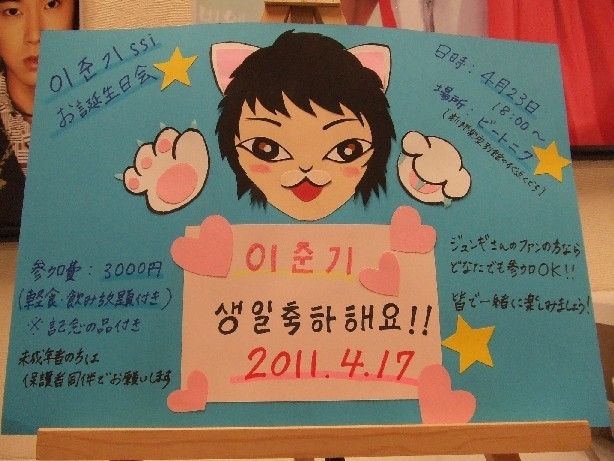 이준기 ssi
お誕生日会
日時：4月23日
18:00〜
場所：ビートニク
이준기
생일축하해요!!
2011.4.17
参加費：3000円
(軽食・飲み放題付き)
※記念の品付き
未成年者の方は
保護者同伴でお願いします
ジュンギさんのファンの方なら
どなたでも参加OK!!
皆で一緒に楽しみましょう!